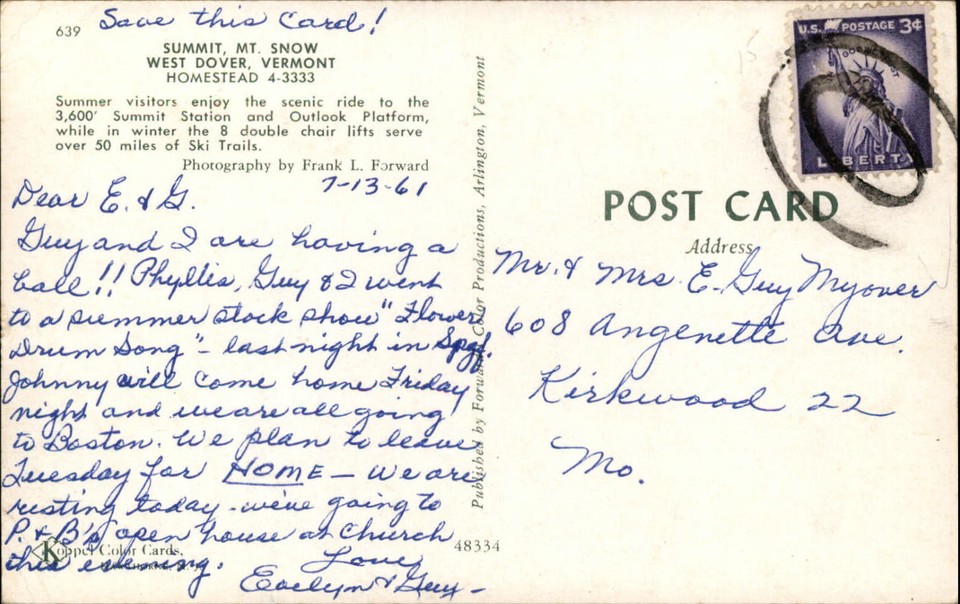 Save this Card!
639
SUMMIT, MT. SNOW
WEST DOVER, VERMONT
HOMESTEAD 4-3333
Summer visitors enjoy the scenic ride to the
3,600' Summit Station and Outlook Platform,
while in winter the 8 double chair lifts serve
over 50 miles of Ski Trails.
Photography by Frank L. Forward
7-13-61
Dear E. & G.
Guy and I are having a
ball!! Phyllis, Guy & I went
to a summer stock show "Flower
Drum Song" - last night in Spgf.
Johnny will come home Friday
night and we are all going
to Boston. We plan to leave
Tuesday for HOME - We are
resting today - we're going to
P. & B's open house at Church
this evening.
Love,
Evelyn & Guy -
Koppel Color Cards,
48334
Published by Forward Color Productions, Arlington, Vermont
U.S. POSTAGE 3¢
LIBERTY
POST CARD
Address
Mr. & Mrs E. Guy Myover
608 Angenette Ave.
Kirkwood 22
Mo.